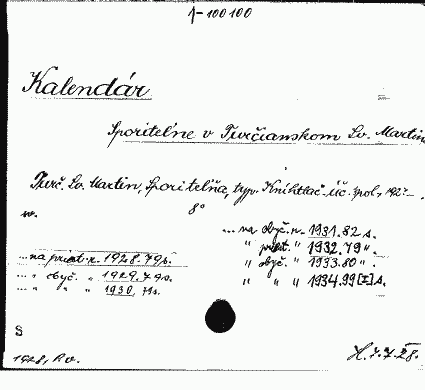 1-100100
Kalendár
Sporiteľne v Turčianskom Sv. Martine
Turč. Sv. Martin, Sporiteľňa, typ. Kníhtlač. úč. spol., 192-.
8°
w.
... na obyč. r. 1931. 82 s.
" priest. " 1932. 79 ".
" obyč. " 1933. 80 ".
" " " 1934. 99 [I] s.
... na priest. r. 1928. 79 s.
... " obyč. " 1929. 79 s.
... " " " 1930, 79 s.
S
1928, P. v.